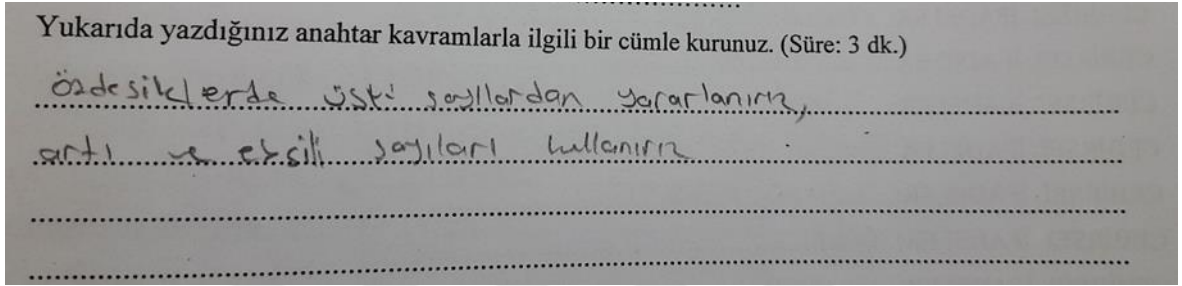 Yukarıda yazdığınız anahtar kavramlarla ilgili bir cümle kurunuz. (Süre: 3 dk.)
özdesiklerde üstü sayllardan yararlanırız,
artı ve eksili sayıları kullanırız